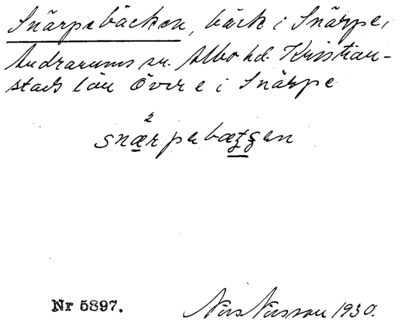 Snärpebäcken, bäck i Snärpe,
Andrarums sn. Albo hd. Kristian-
stads län Över e i Snärpe
2
snærpebætgen
Nr 5897.
Nils Nilsson 1930.